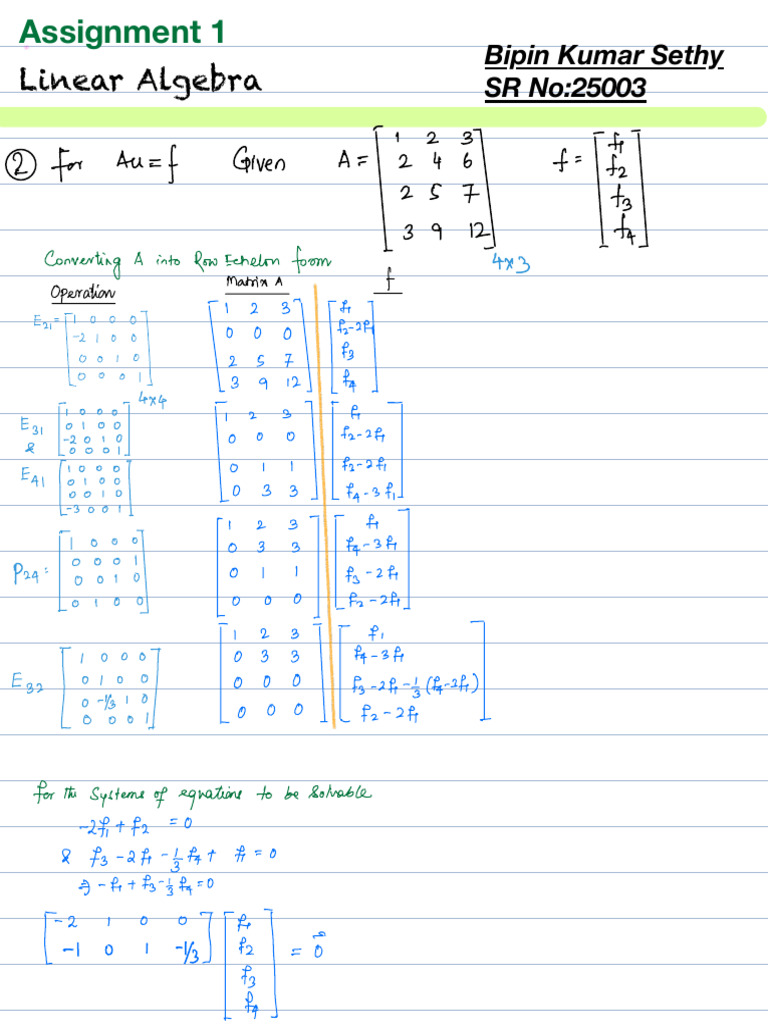 Assignment 1
Linear Algebra
Bipin Kumar Sethy
SR No:25003
② For Au = f Given A = [1 2 3; 2 4 6; 2 5 7; 3 9 12] 4×3 f = [f1; f2; f3; f4]
Converting A into Row Echelon form
Operation Matrix A f
E21 = [1 0 0 0; -2 1 0 0; 0 0 1 0; 0 0 0 1] 4×4 [1 2 3; 0 0 0; 2 5 7; 3 9 12] [f1; f2-2f1; f3; f4]
E31 [1 0 0 0; 0 1 0 0; -2 0 1 0; 0 0 0 1]
&
E41 [1 0 0 0; 0 1 0 0; 0 0 1 0; -3 0 0 1] [1 2 3; 0 0 0; 0 1 1; 0 3 3] [f1; f2-2f1; f2-2f1; f4-3f1]
P24 = [1 0 0 0; 0 0 0 1; 0 0 1 0; 0 1 0 0] [1 2 3; 0 3 3; 0 1 1; 0 0 0] [f1; f4-3f1; f3-2f1; f2-2f1]
E32 [1 0 0 0; 0 1 0 0; 0 -1/3 1 0; 0 0 0 1] [1 2 3; 0 3 3; 0 0 0; 0 0 0] [f1; f4-3f1; f3-2f1-1/3(f4-2f1); f2-2f1]
for the Systems of equations to be Solvable
-2f1 + f2 = 0
& f3 - 2f1 - 1/3 f4 + f1 = 0
⇒ -f1 + f3 - 1/3 f4 = 0
[-2 1 0 0; -1 0 1 -1/3] [f1; f2; f3; f4] = 0